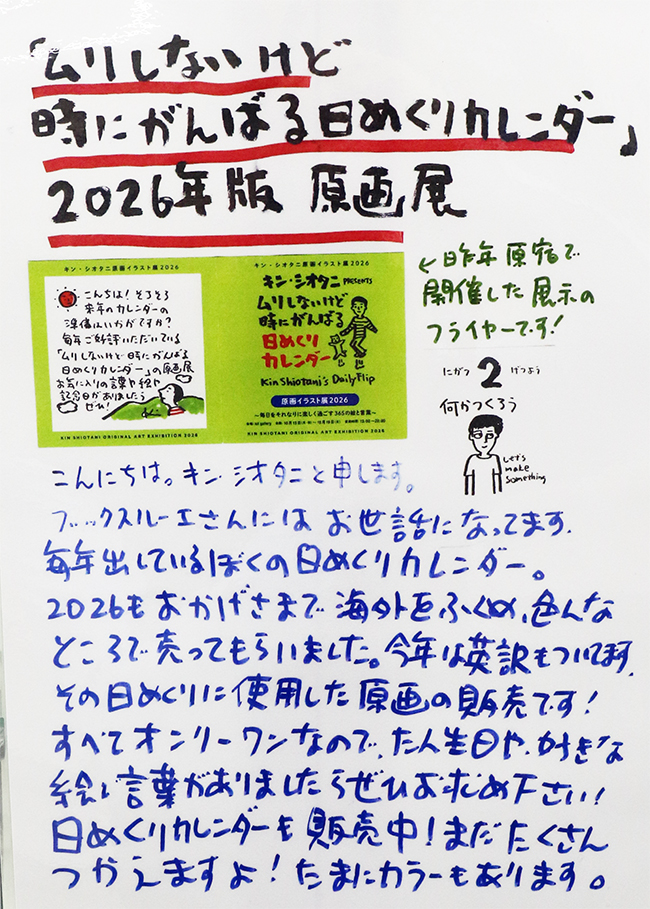 「ムリしないけど
時にがんばる日めくりカレンダー」
2026年版 原画展
キン・シオタニ原画イラスト展2026
こんちは！そろそろ
来年のカレンダーの
準備はいかがですか？
毎年ご好評いただいている
「ムリしないけど時にがんばる
日めくりカレンダー」の原画展
お気に入りの言葉や絵や
記念日がありましたら
ぜひ！
KIN SHIOTANI ORIGINAL ART EXHIBITION 2026
キン・シオタニ原画イラスト展2026
キン・シオタニ PRESENTS
ムリしないけど
時にがんばる
日めくり
カレンダー
Kin Shiotani's Daily Flip
原画イラスト展2026
〜毎日をそれなりに楽しく過ごす365の絵と言葉〜
KIN SHIOTANI ORIGINAL ART EXHIBITION 2026
←昨年原宿で
開催した展示の
フライヤーです！
にがつ 2 げつよう
何かつくろう
Let's
make
something
こんにちは。キン・シオタニと申します。
ブックスルーエさんにはお世話になってます。
毎年出しているぼくの日めくりカレンダー。
2026もおかげさまで海外をふくめ、色んな
ところで売ってもらいました。今年は英訳もついてます。
その日めくりに使用した原画の販売です！
すべてオンリーワンなので、たん生日や、好きな
絵と言葉がありましたらぜひお求め下さい！
日めくりカレンダーも販売中！まだたくさん
つかえますよ！たまにカラーもあります。